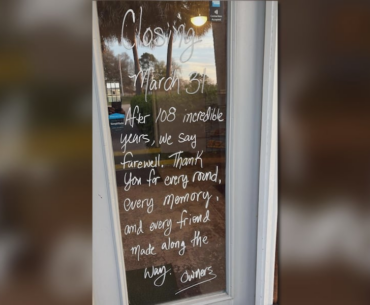 Closing
March 31
After 108 incredible
years, we say
farewell. Thank
You for every round,
every memory,
and every friend
made along the
way. Owners